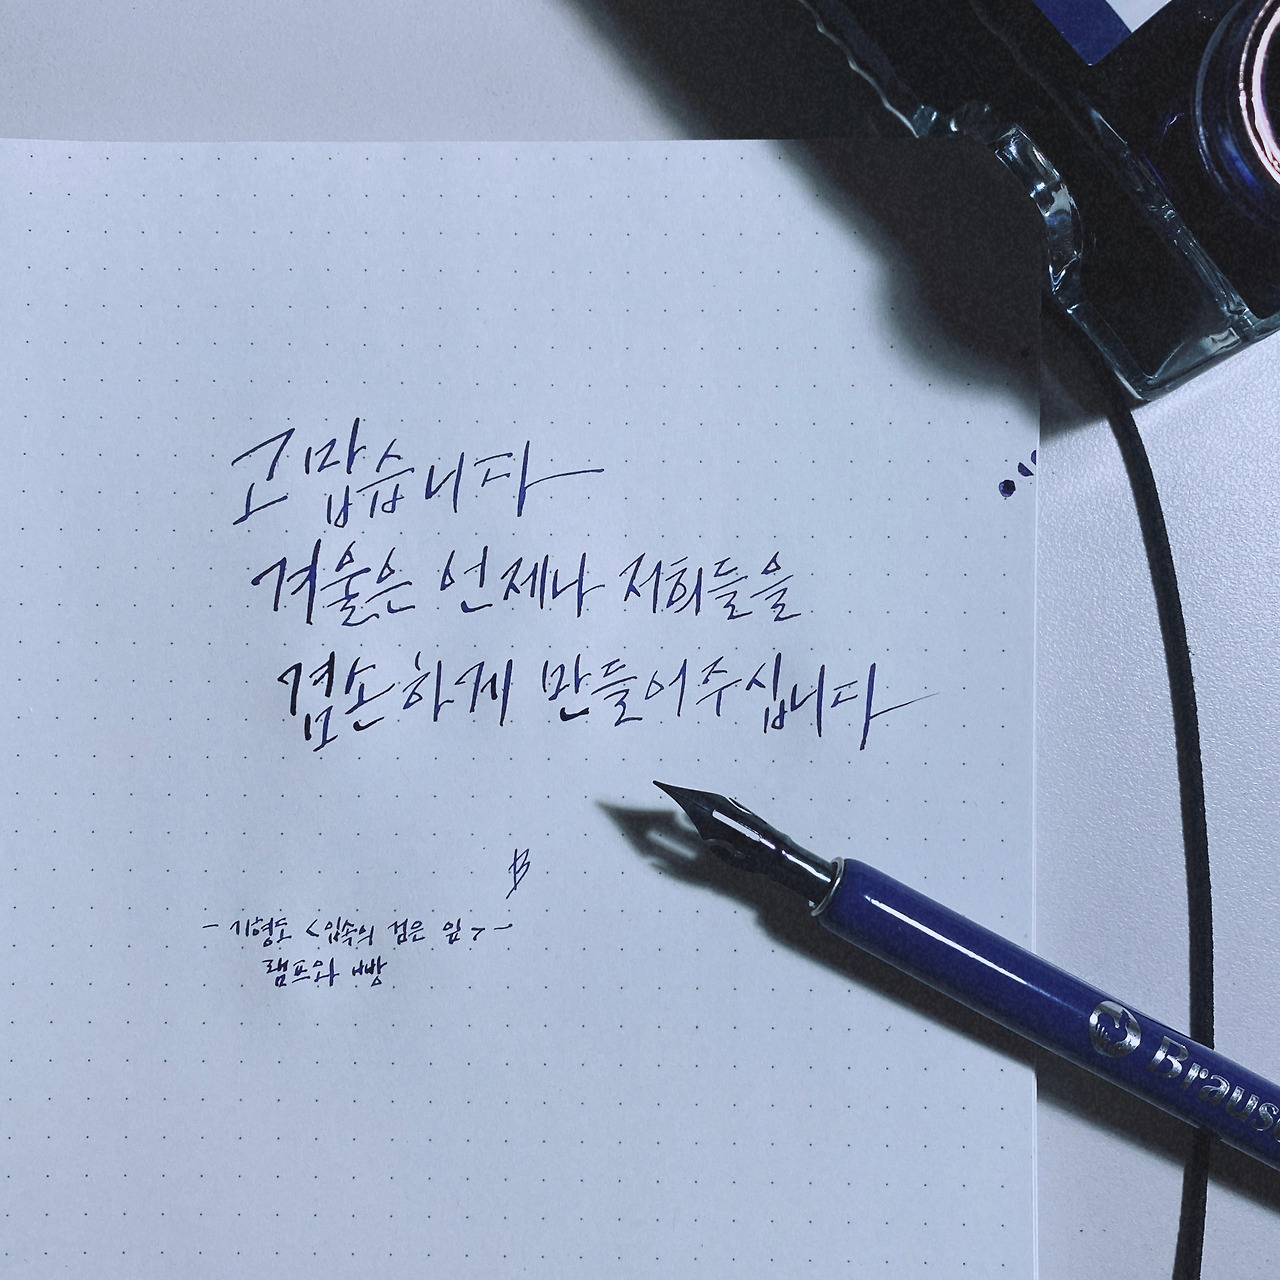 고맙습니다
겨울은 언제나 저희들을
겸손하게 만들어주십니다
B
- 기형도 <입속의 검은 잎> -
램프와 빵
Brause